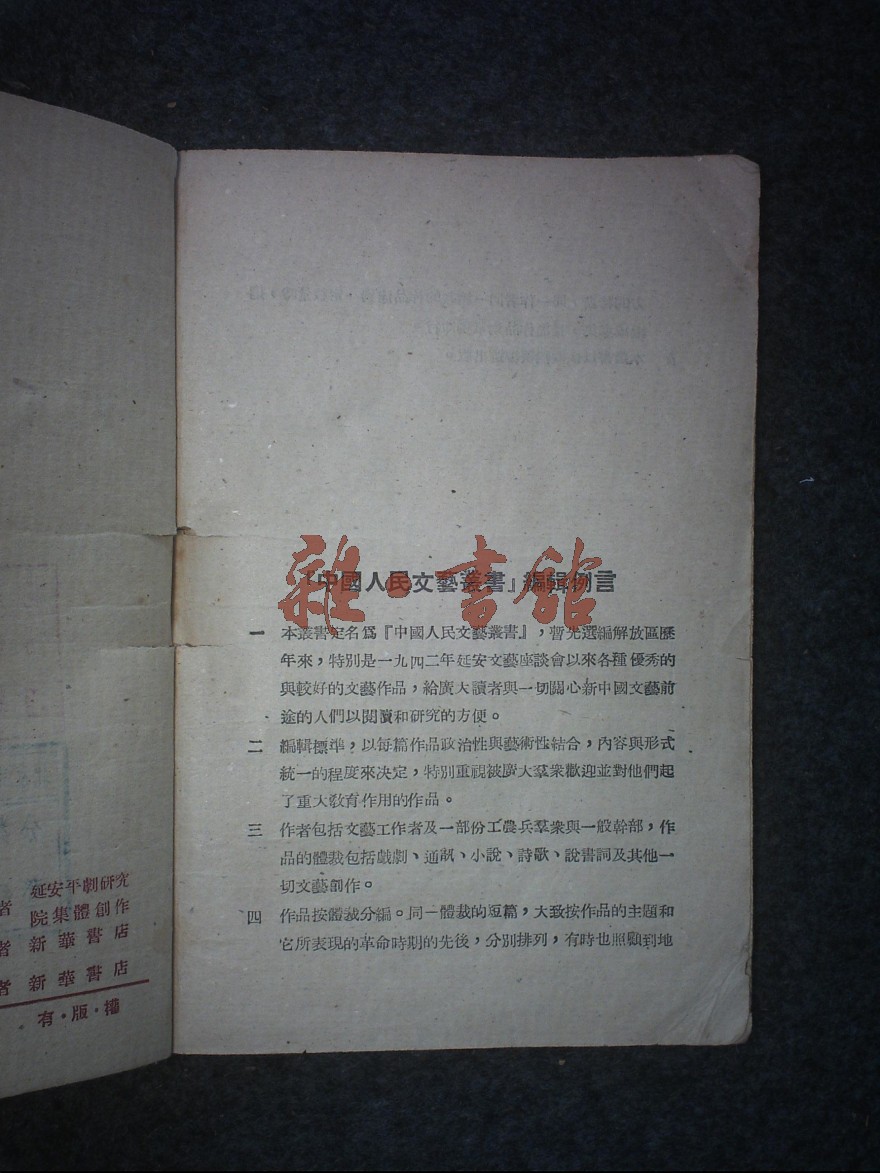 「中國人民文藝叢書」編輯例言
雜·書館
一 本叢書定名爲『中國人民文藝叢書』，暫先選編解放區歷
年來，特別是一九四二年延安文藝座談會以來各種優秀的
與較好的文藝作品，給廣大讀者與一切關心新中國文藝前
途的人們以閱讀和研究的方便。
二 編輯標準，以每篇作品政治性與藝術性結合，內容與形式
統一的程度來決定，特別重視被廣大羣衆歡迎並對他們起
了重大敎育作用的作品。
三 作者包括文藝工作者及一部份工農兵羣衆與一般幹部，作
品的體裁包括戲劇、通訊、小說、詩歌、說書詞及其他一
切文藝創作。
四 作品按體裁分編。同一體裁的短篇，大致按作品的主題和
它所表現的革命時期的先後，分別排列，有時也照顧到地
者 延安平劇研究
院集體創作
者 新華書店
者 新華書店
有·版·權